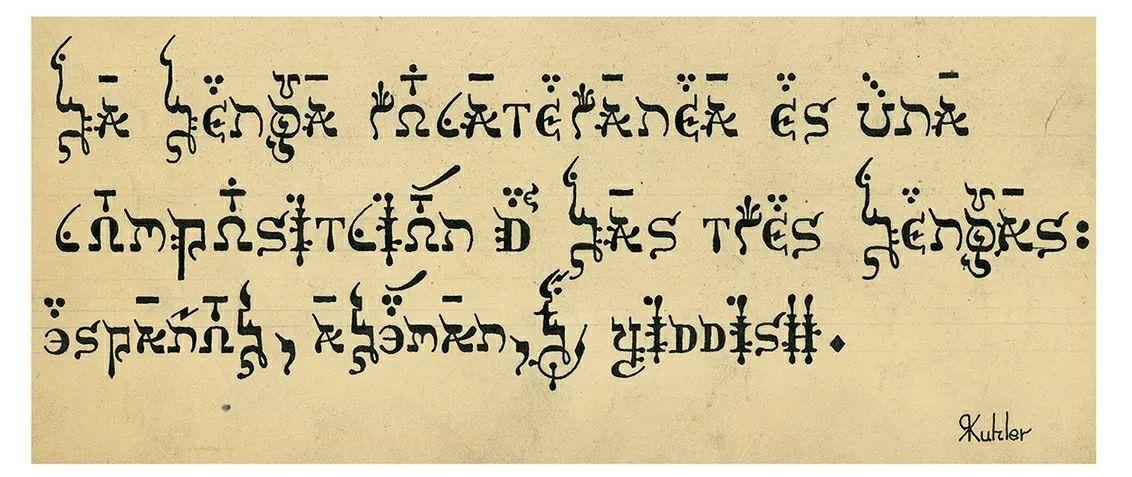 LA LENGA ROCATERANEA ES UNA
COMPOSITCIÓN D' LAS TRES LENGAS:
ESPAÑOL, ALÉMAN, & YIDDISH.
RKuhler